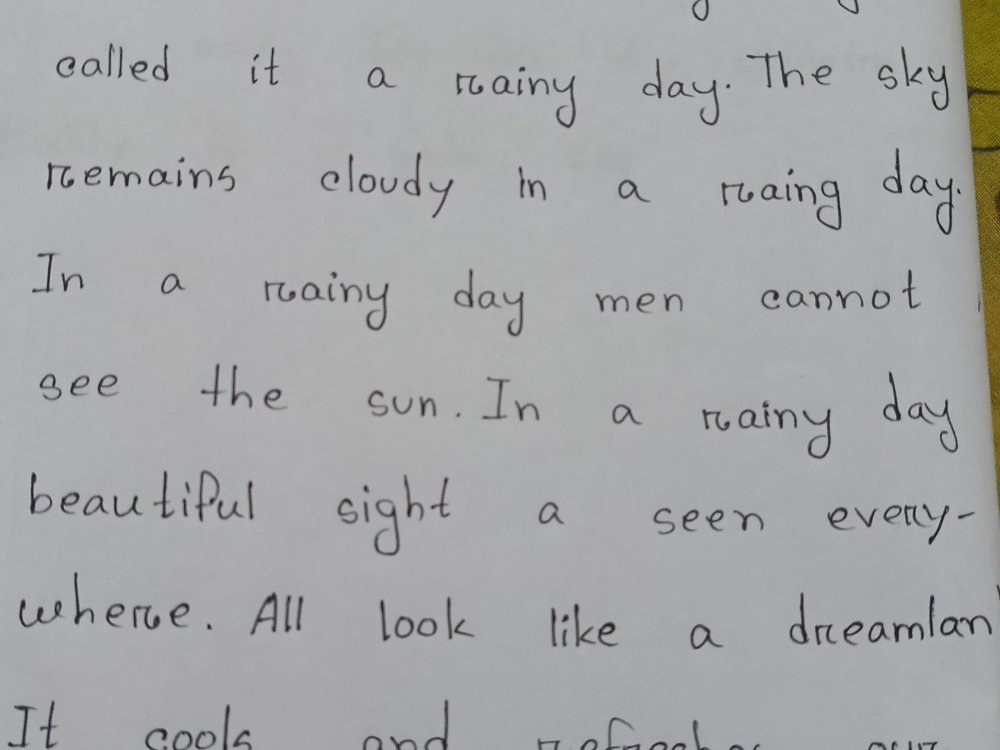 called it a rainy day. The sky
remains cloudy in a raing day.
In a rainy day men cannot
see the sun. In a rainy day
beautiful sight a seen every-
where. All look like a dreamlan
It cools and